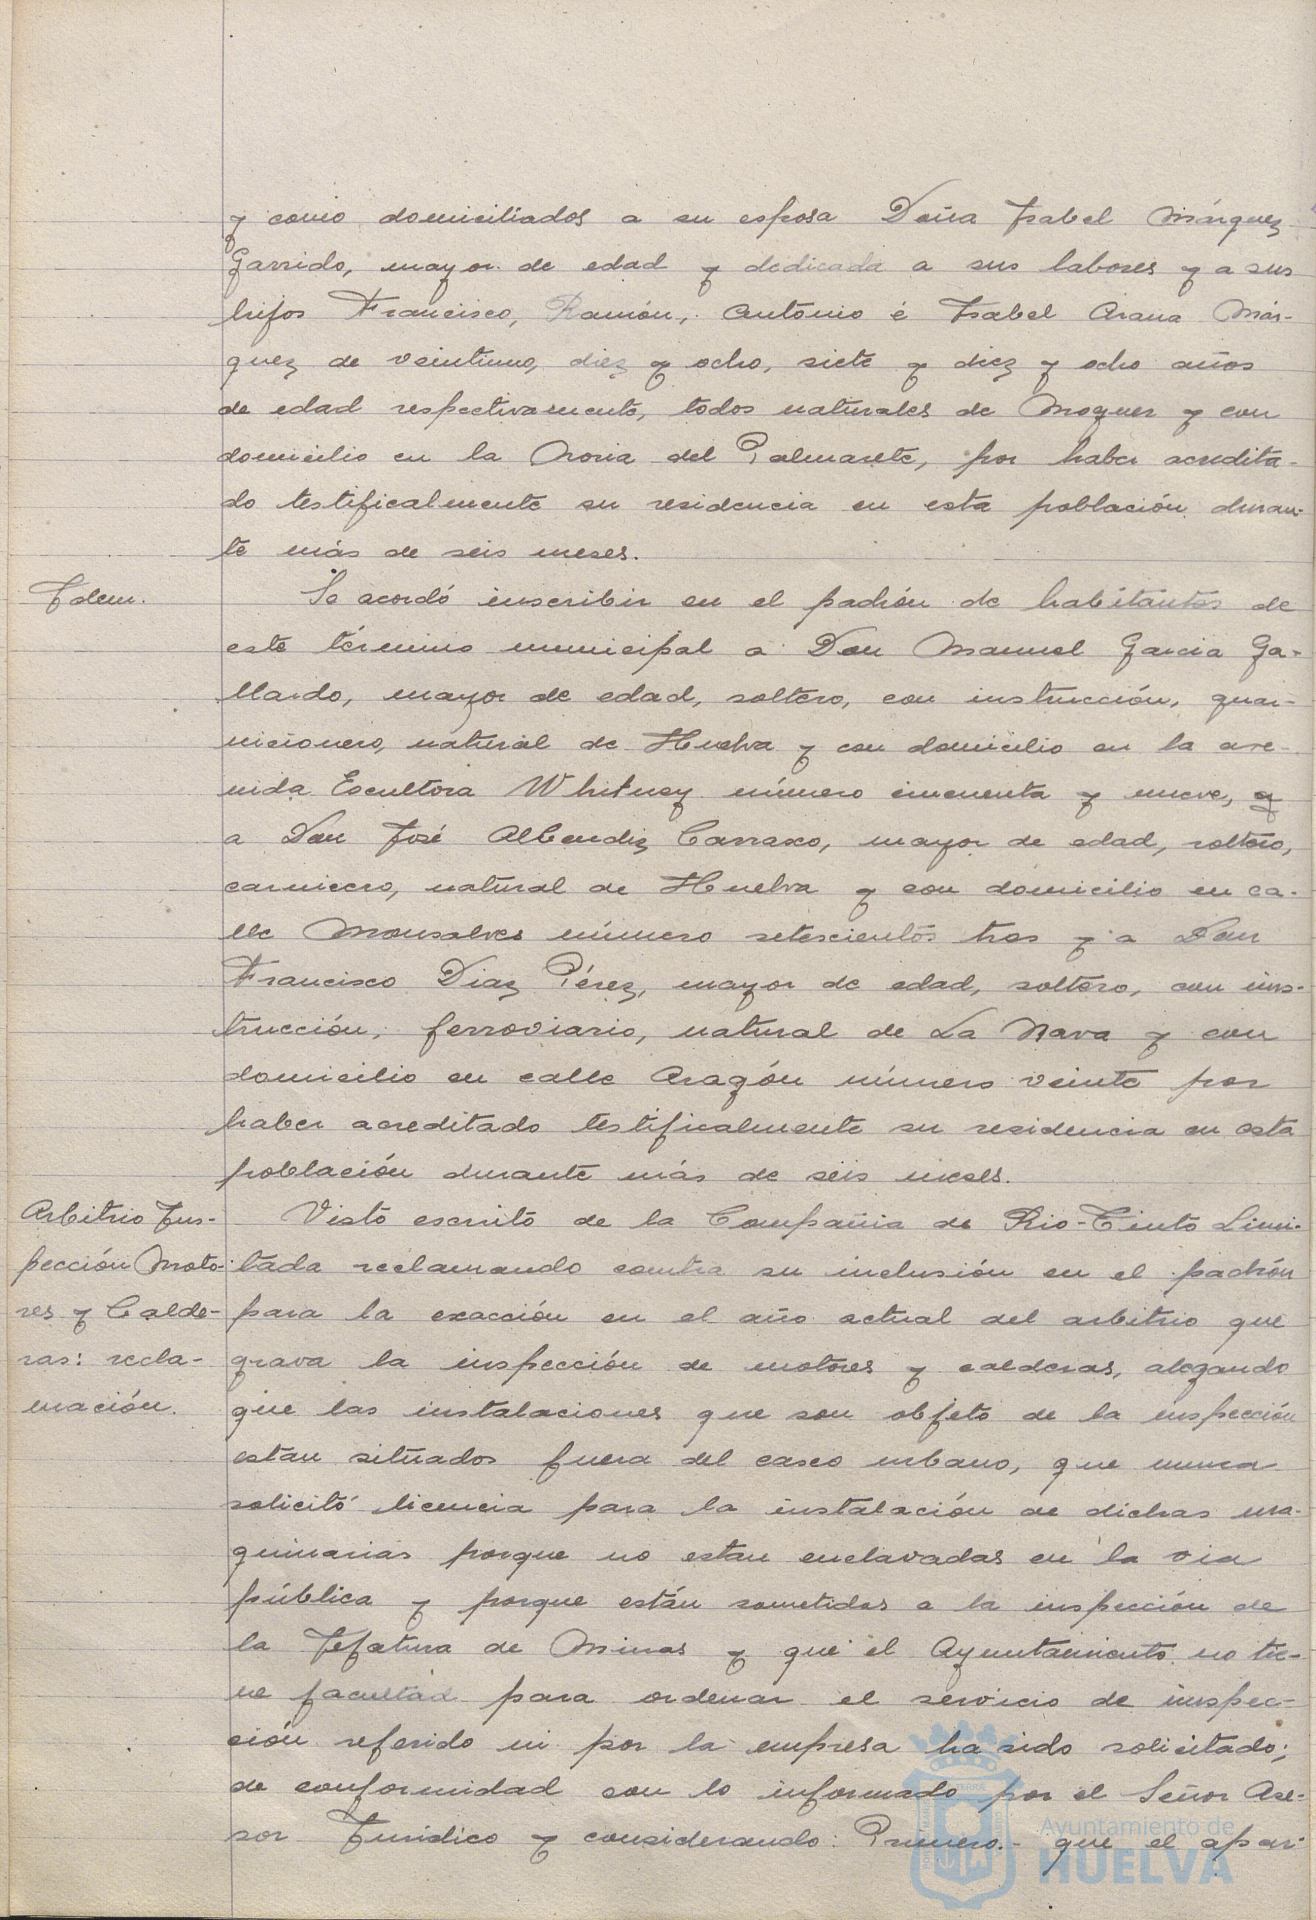 y como domiciliados a su esposa Doña Isabel Márquez
Garrido, mayor de edad y dedicada a sus labores y a sus
hijos Francisco, Ramón, Antonio é Isabel Arana Már-
quez de veintiuno, diez y ocho, siete y diez y ocho años
de edad respectivamente, todos naturales de Moguer y con
domicilio en la Noria del Palmarete, por haber acredita-
do testificalmente su residencia en esta población duran-
te más de seis meses.
Idem.
Se acordó inscribir en el padrón de habitantes de
este término municipal a Don Manuel Garcia Ga-
llardo, mayor de edad, soltero, con instrucción, guar-
nicionero, natural de Huelva y con domicilio en la ave-
nida Escultora Whitney número cincuenta y nueve, y
a Don José Albendiz Carrasco, mayor de edad, soltero,
carnicero, natural de Huelva y con domicilio en ca-
lle Monsalves número setescientos tres y a Don
Francisco Diaz Pérez, mayor de edad, soltero, con ins-
trucción, ferroviario, natural de La Nava y con
domicilio en calle Aragón número veinte por
haber acreditado testificalmente su residencia en esta
población durante más de seis meses.
Arbitrio Ins-
pección Moto-
res y Calde-
ras: recla-
mación.
Visto escrito de la Compañia de Rio-Tinto Limi-
tada reclamando contra su inclusión en el padrón
para la exacción en el año actual del arbitrio que
grava la inspección de motores y calderas, alegando
que las instalaciones que son objeto de la inspección
estan situados fuera del casco urbano, que nunca
solicitó licencia para la instalación de dichas ma-
quinarias porque no estan enclavadas en la via
pública y porque están sometidas a la inspección de
la Jefatura de Minas y que el Ayuntamiento no tie-
ne facultad para ordenar el servicio de inspec-
ción referido ni por la empresa ha sido solicitado;
de conformidad con lo informado por el Señor Ase-
sor Juridico y considerando: Primero.- que el apar-
Ayuntamiento de
HUELVA